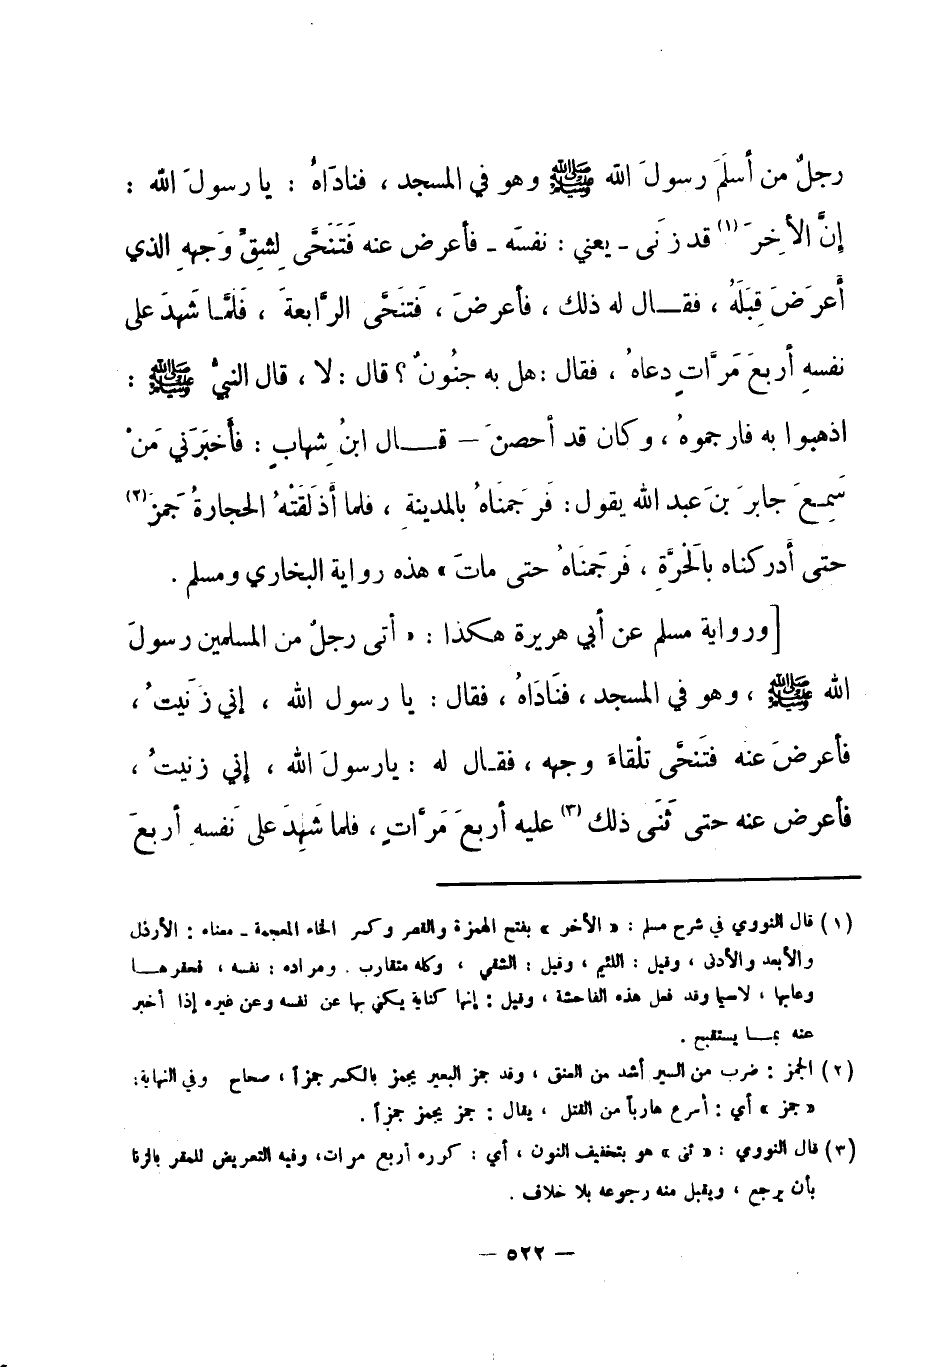 رجلٌ من أسلَمَ رسولَ الله ﷺ وهو في المسجد ، فنادَاهُ : يا رسولَ الله :
إنَّ الأخِرَ (١) قد زَنَى ـ يعني : نفسَه ـ فأعرض عنه فَتَنَحَّى لِشِقِّ وَجههِ الذي
أَعرَضَ قِبَلَهُ ، فقـــال له ذلك ، فأعرضَ ، فَتنَحَّى الرَّابعةَ ، فَلمَّا شَهِدَ على
نفسهِ أربعَ مَرَّاتٍ دعاهُ ، فقال : هل به جنُونٌ ؟ قال : لا ، قال النبيُّ ﷺ :
اذهبوا به فارجموهُ ، وكان قد أحصنَ – قـــال ابنُ شِهابٍ : فأَخبَرَني مَنْ
سَمِـعَ جابرَ بنَ عبد الله يقول : فَرجَمنَاهُ بالمدينةِ ، فلما أَذلَقَتْهُ الحجارةُ جَمزَ (٢)
حتى أَدركناه بالحَرَّةِ ، فَرجَمنَاهُ حتى ماتَ » هذه رواية البخاري ومسلم .
[ورواية مسلم عن أبي هريرة هكذا : « أتى رجلٌ من المسلمين رسولَ
الله ﷺ ، وهو في المسجد ، فنَادَاهُ ، فقال : يا رسول الله ، إني زَنيتُ ،
فأعرضَ عنه فتَنحَّى تلْقاءَ وجهه ، فقـال له : يارسولَ الله ، إني زنيتُ ،
فأعرض عنه حتى ثَنَى ذلك (٣) عليه أربعَ مَرَّاتٍ ، فلما شَهِدَ على نَفسهِ أربعَ
(١) قال النووي في شرح مسلم : « الأخر » بفتح الهمزة والقصر وكسر الخاء المعجمة ـ معناه : الأرذل
والأبعد والأدنى ، وقيل : اللئيم ، وقيل : الشقي ، وكله متقارب . ومراده : نفسه ، فحقرهـــا
وعابها ، لاسيما وقد فعل هذه الفاحشة ، وقيل : إنها كناية يكني بها عن نفسه وعن غيره إذا أخبر
عنه بمـــا يستقبح .
(٢) الجمز : ضرب من السير أشد من العنق ، وقد جمز البعير يجمز بالكسر جمزاً ، صحاح وفي النهاية :
« جمز » أي : أسرع هارباً من القتل ، يقال : جمز يجمز جمزاً .
(٣) قال النووي : « ثنى » هو بتخفيف النون ، أي : كرره أربع مرات، وفيه التعريض للمقر بالزنا
بأن يرجع ، ويقبل منه رجوعه بلا خلاف .
— ٥٢٢ —